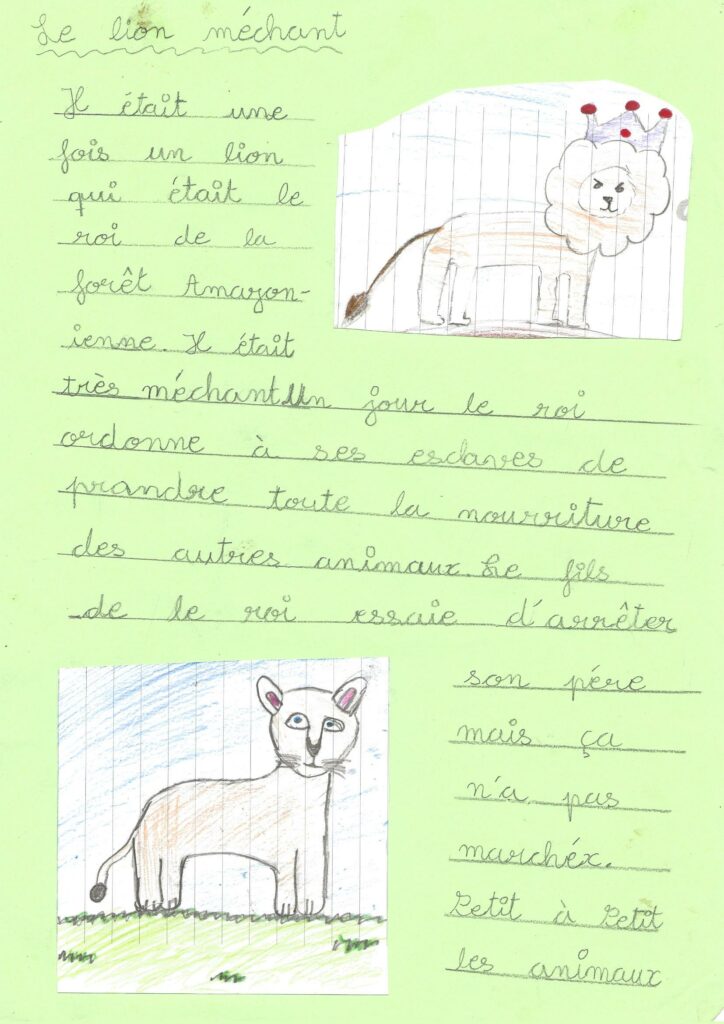 Le lion méchant
Il était une
fois un lion
qui était le
roi de la
forêt Amazon-
ienne. Il était
très méchant Un jour le roi
ordonne à ses esclaves de
prandre toute la nourriture
des autres animaux. Le fils
de le roi essaie d'arrêter
son pére
mais ça
n'a pas
marchéx.
Petit à Petit
les animaux